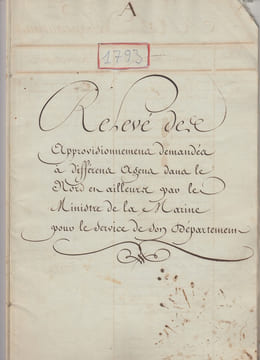 A
1793 —
Relevé des
Approvisionnemens demandés
à différens Agens dans le
Nord et ailleurs par le
Ministre de la Marine
pour le service de son Département